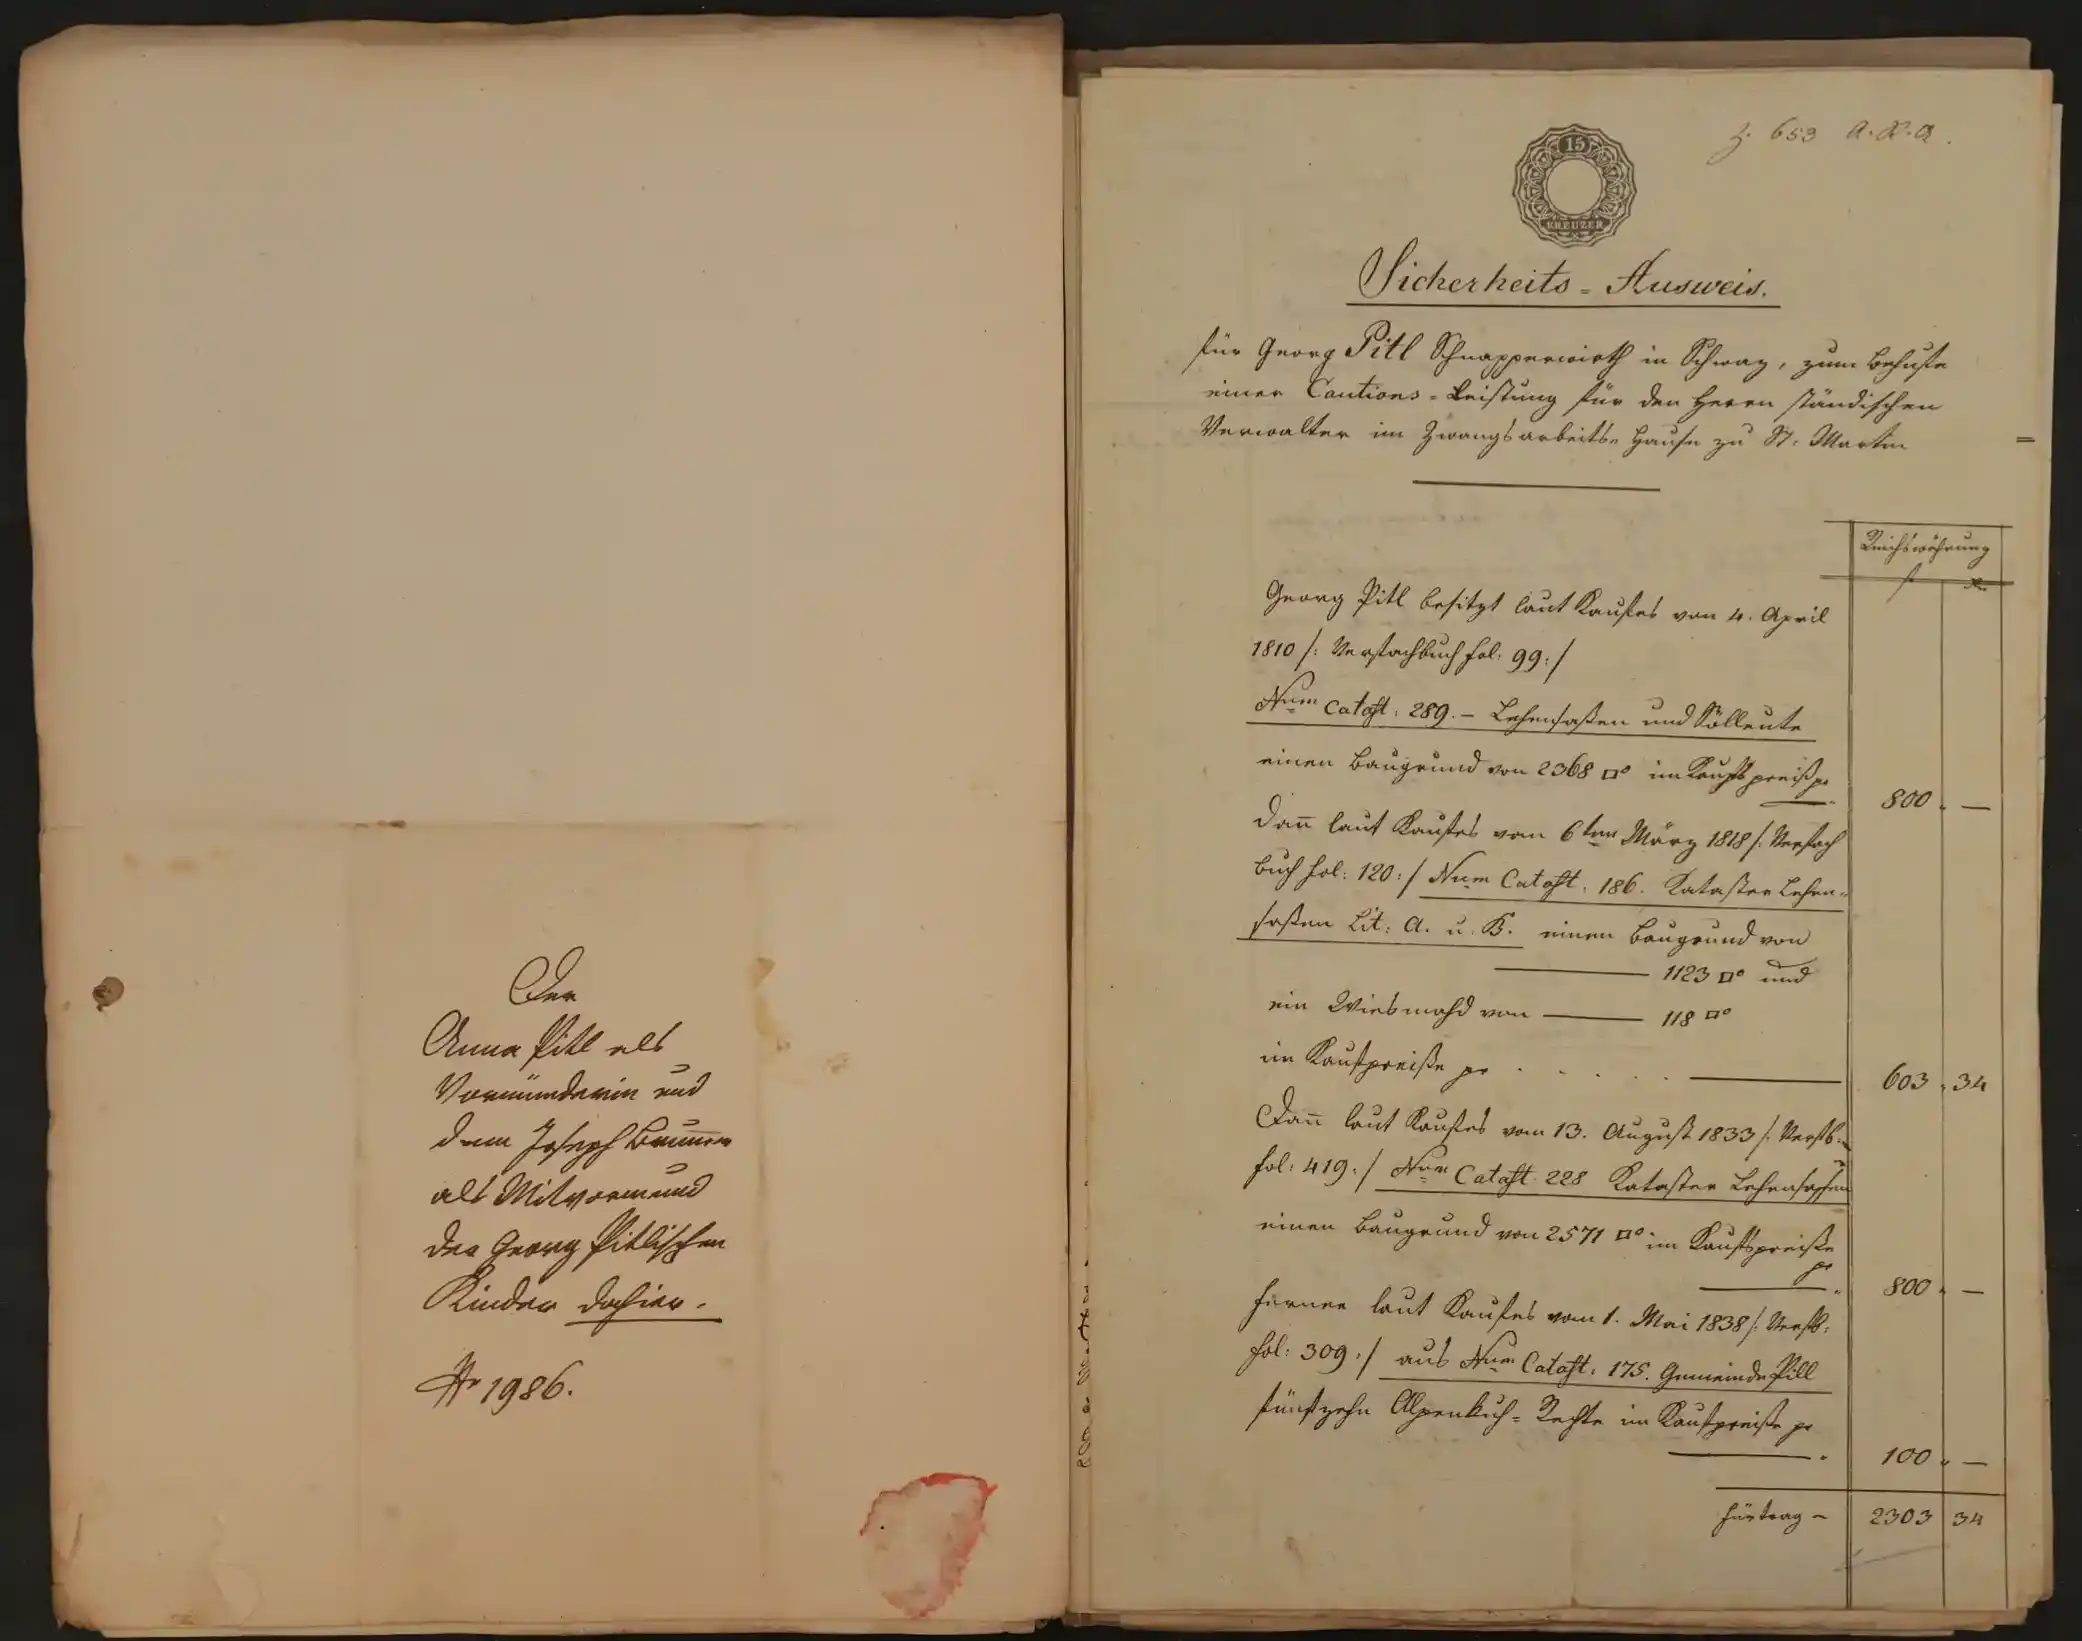 Der
Anna Pitl als
Vormünderin und
dem Joseph Brunner
als Mitvormund
der Georg Pitlischen
Kinder dahier.
Nr 1986.
Z. 653
15
KREUZER
Sicherheits-Ausweis.
für Georg Pitl Schnapperwirth in Schwaz, zum Behufe
einer Cautions-Leistung für den Herrn ständischen
Verwalter im Zwangsarbeits-Hause zu St: Martin
Reichswährung
f x
Georg Pitl besitzt laut Kaufes von 4. April
1810 /: Verfachbuch fol: 99 :/
Num Catast: 289. – Lehensaßen und Sölleute
einen Baugrund von 2368 □° im Kaufspreiß pr
800 . —
Dan̄ laut Kaufes vom 6ten März 1818 /: Verfach
buch fol: 120 :/ Num Catast: 186. Kataster Lehen-
saßen Lit: A. u. B. einen Baugrund von
1123 □° und
ein Wiesmahd von 118 □°
im Kaufpreiße pr . . . . . 603 . 34
Dan̄ laut Kaufes vom 13. August 1833 /: Verfb:
fol: 419 :/ Num Catast. 228 Kataster Lehensassen
einen Baugrund von 2571 □° im Kaufspreiße
pr
800 . —
Ferner laut Kaufes vom 1. Mai 1838 /: Verfb:
fol: 309 :/ aus Num Catast: 175. Gemeinde Pill
fünfzehn Alpenkuh-Rechte im Kaufpreiße pr
100 . —
Fürtrag – 2303 34